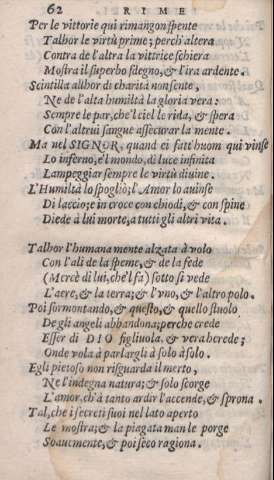 62 RIME
Per le vittorie qui rimangon spente
Talhor le virtù prime; perch'altera
Contra de l'altra la vittrice schiera
Mostra il superbo sdegno, & l'ira ardente.
Scintilla allhor di charità non sente,
Ne de l'alta humiltà la gloria vera:
Sempre le par, che'l ciel le rida, & spera
Con l'altrui sangue assecurar la mente.
Ma nel SIGNOR, quand ei fatt'huom qui vinse
Lo inferno, e'l mondo, di luce infinita
Lampeggiar sempre le virtù divine.
L'Humiltà lo spogliò; l'Amor lo avinse
Di laccio; e in croce con chiodi, & con spine
Diede à lui morte, a tutti gli altri vita.
Talhor l'humana mente alzata à volo
Con l'ali de la speme, & de la fede
(Mercè di lui, che'l fà) sotto si vede
L'aere, & la terra; & l'uno, & l'altro polo.
Poi sormontando, & questo, & quello stuolo
De gli angeli abbandona; perche crede
Esser di DIO figliuola, & vera herede;
Onde vola à parlargli à solo à solo.
Egli pietoso non risguarda il merto,
Ne l'indegna natura; & solo scorge
L'amor, ch'à tanto ardir l'accende, & sprona.
Tal, che i secreti suoi nel lato aperto
Le mostra; & la piagata man le porge
Soavemente, & poi seco ragiona.